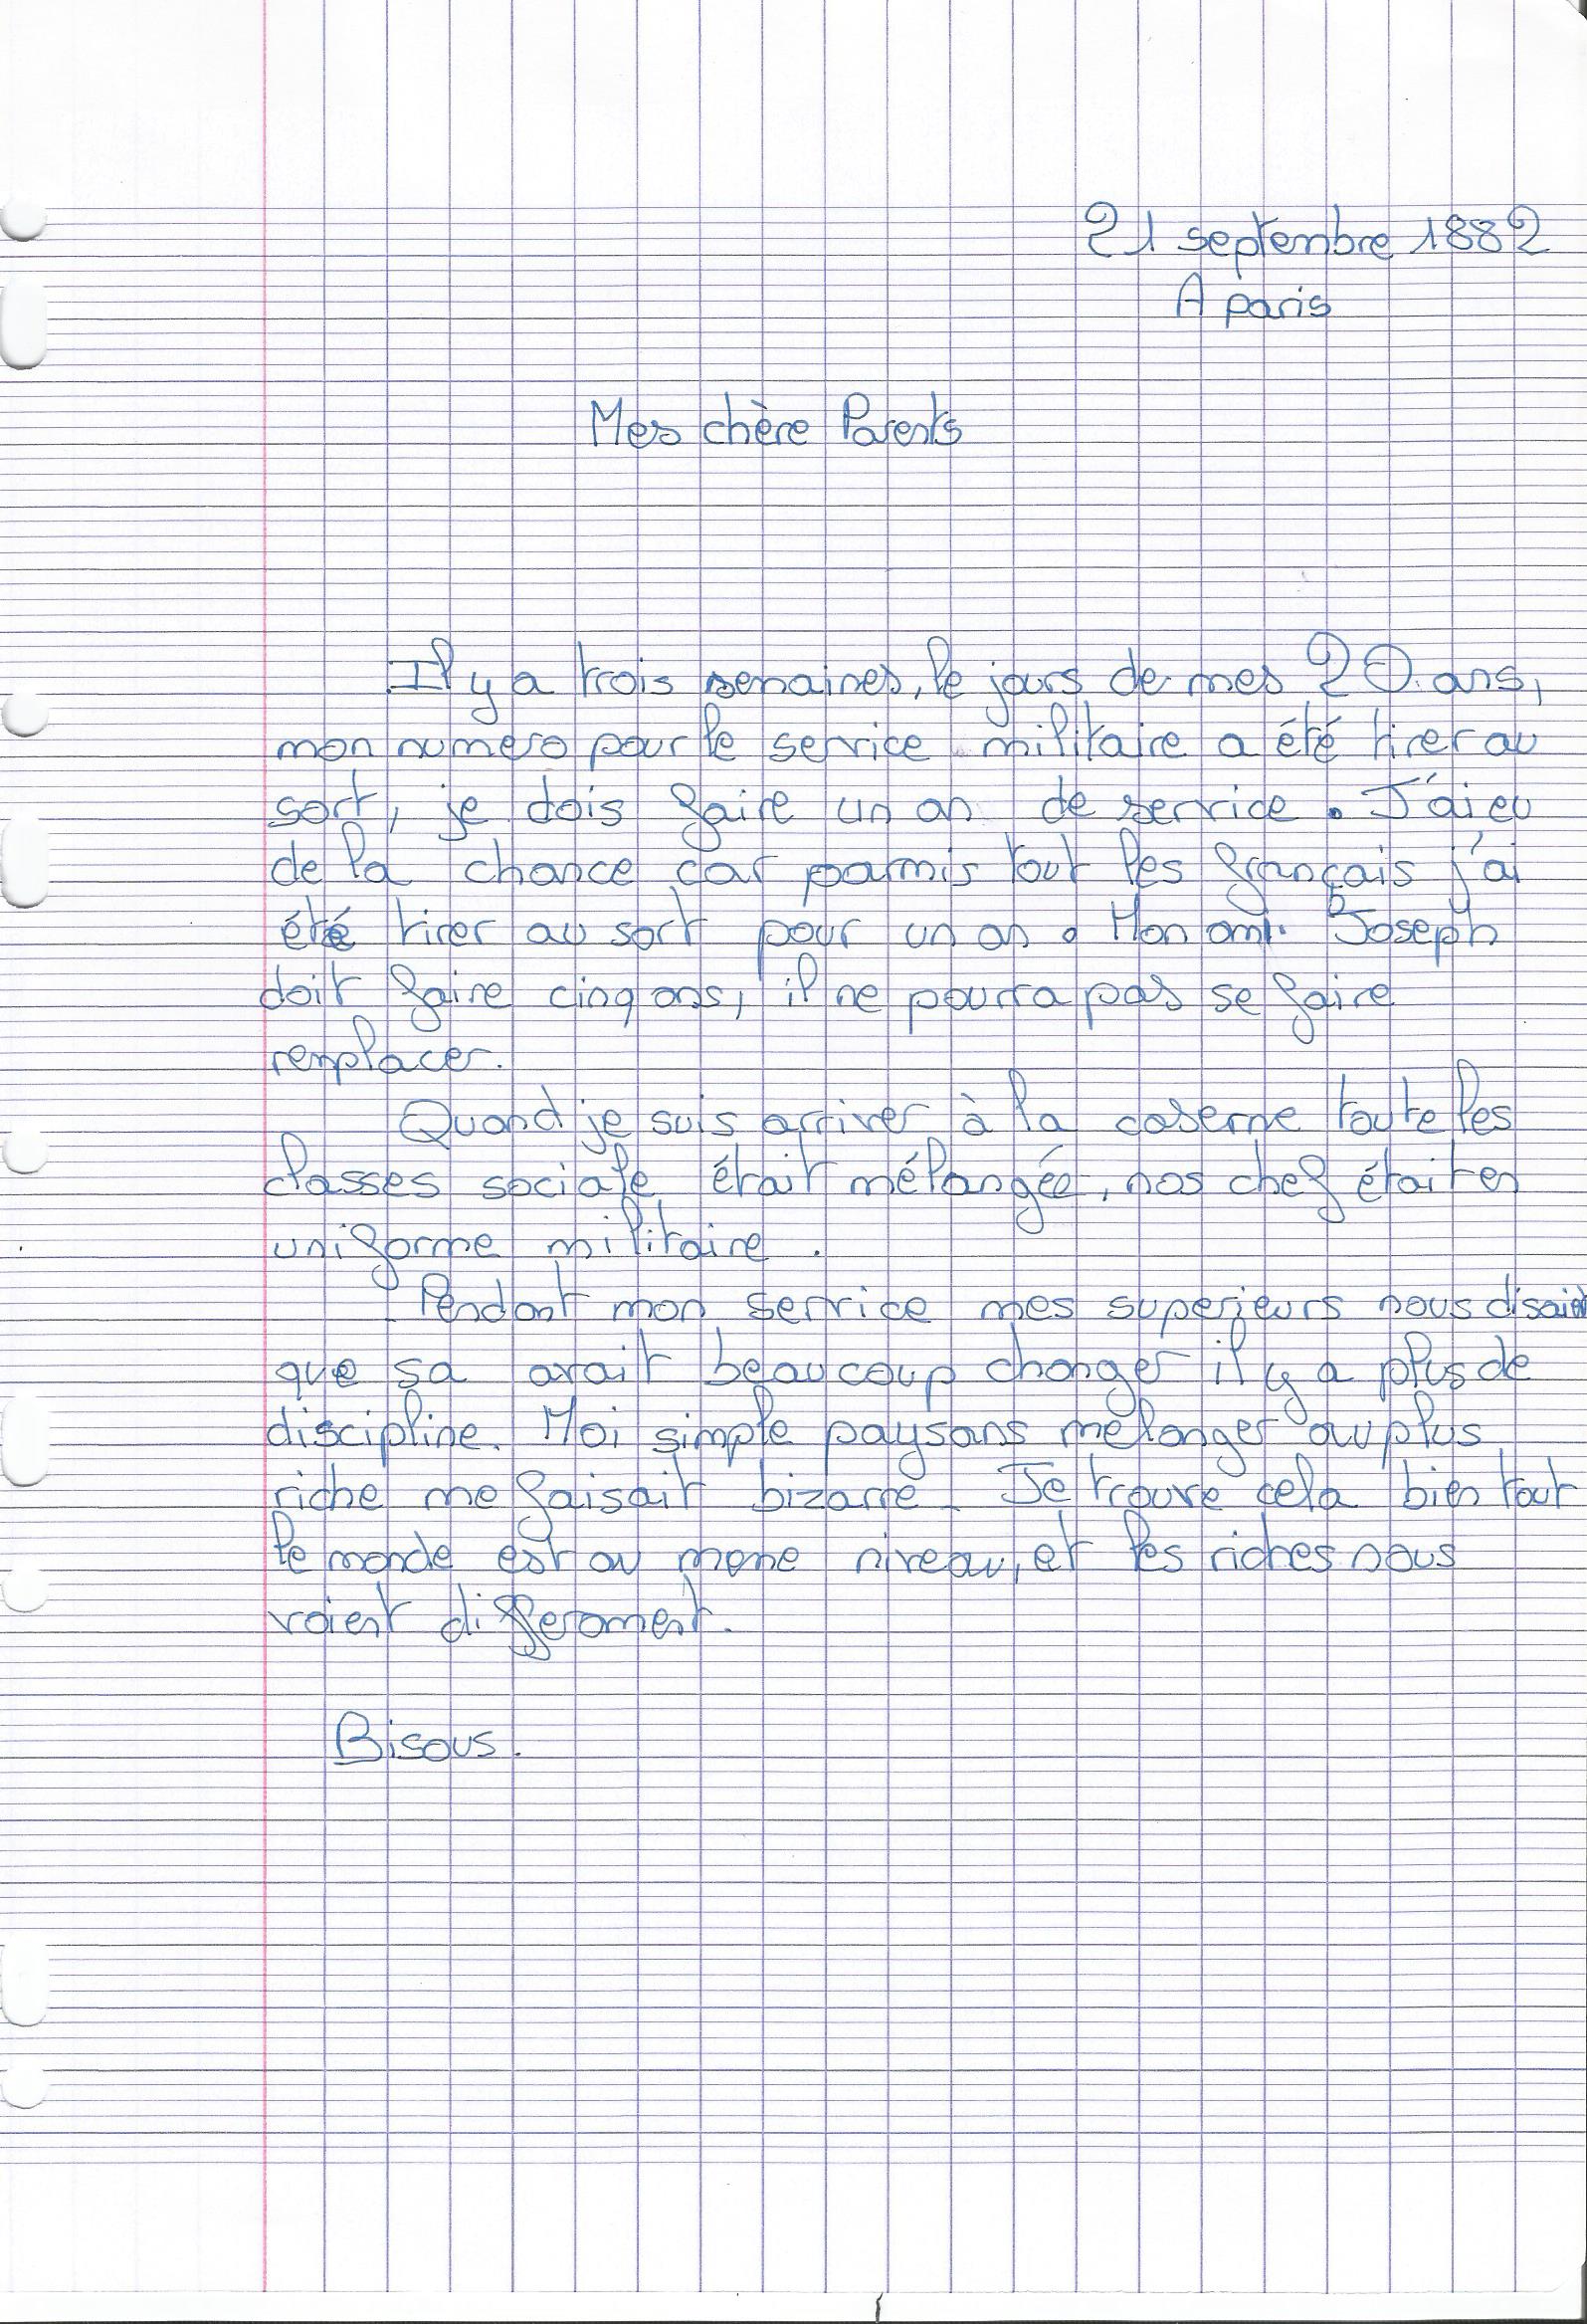 21 septembre 1882
A paris
Mes chère Parents
Il y a trois semaines, le jours de mes 20 ans,
mon numero pour le service militaire a été tirer au
sort, je dois faire un an de service. J'ai eu
de la chance car parmis tout les français j'ai
été tirer au sort pour un an. Mon ami Joseph
doit faire cinq ans, il ne pourra pas se faire
remplacer.
Quand je suis arriver à la caserne toute les
classes sociale était mélangée, nos chef était en
uniforme militaire.
Pendant mon service mes superieurs nous disaient
que sa avait beaucoup changer il y a plus de
discipline. Moi simple paysans melanger au plus
riche me faisait bizarre. Je trouve cela bien tout
le monde est au meme niveau, et les riches nous
voient differament.
Bisous.